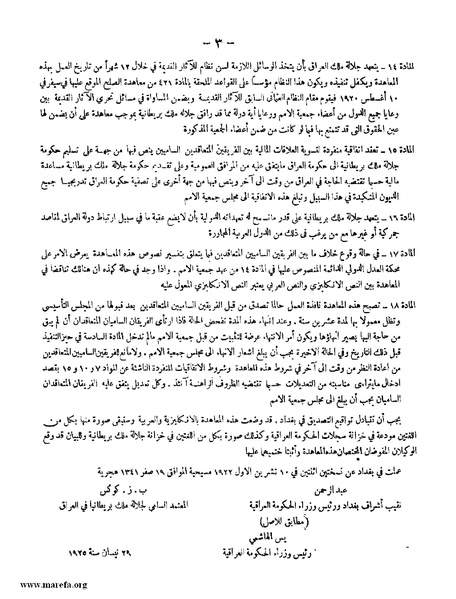 — ٣ —
المادة ١٤ — يتعهد جلالة ملك العراق بأن يتخذ الوسائل اللازمة لسن نظام للآثار القديمة في خلال ١٢ شهراً من تاريخ العمل بهذه
المعاهدة ويكفل تنفيذه ويكون هذا النظام مؤسساً على القواعد الملحقة بالمادة ٤٢١ من معاهدة الصلح الموقع عليها في سيفر في
١٠ أغسطس ١٩٢٠ فيقوم مقام النظام العثماني السابق للآثار القديمة ويضمن المساواة في مسائل تحري الآثار القديمة بين
رعايا جميع الدول من أعضاء جمعية الامم ورعايا أية دولة مما قد وافق جلالة ملك بريطانية بموجب معاهدة على أن يضمن لها
عين الحقوق التي قد تتمتع بها فيما لو كانت من ضمن أعضاء الجمعية المذكورة
المادة ١٥ — تعقد اتفاقية منفردة لتسوية العلاقات المالية بين الفريقين المتعاقدين الساميين ينص فيها من جهة على تسليم حكومة
جلالة ملك بريطانية الى حكومة العراق مايتفق عليه من المرافق العمومية وعلى تقديم حكومة جلالة ملك بريطانية مساعدة
مالية حسبما تقتضيه الحاجة في العراق من وقت الى آخر وينص فيها من جهة أخرى على تصفية حكومة العراق تدريجياً جميع
الديون المتكبدة في هذا السبيل وتبلغ هذه الاتفاقية الى مجلس جمعية الامم
المادة ١٦ — يتعهد جلالة ملك بريطانية على قدر ماتسمح له تعهداته الدولية بأن لايضع عقبة ما في سبيل ارتباط دولة العراق لمقاصد
جمركية أو غيرها مع من يرغب في ذلك من الدول العربية المجاورة
المادة ١٧ — في حالة وقوع خلاف ما بين الفريقين الساميين المتعاقدين فيما يتعلق بتفسير نصوص هذه المعاهدة يعرض الامر على
محكمة العدل الدولي الدائمة المنصوص عليها في المادة ١٤ من عهد جمعية الامم . واذا وجد في حالة كهذه ان هنالك تناقضا في
المعاهدة بين النص الانكليزي والنص العربي يعتبر النص الانكليزي المعول عليه
المادة ١٨ — تصبح هذه المعاهدة نافذة العمل حالما تصدق من قبل الفريقين الساميين المتعاقدين بعد قبولها من المجلس التأسيسي
وتظل معمولا بها لمدة عشرين سنة . وعند إنتهاء هذه المدة تفحص الحالة فاذا ارتأى الفريقان الساميان المتعاقدان أن لم يبق
من حاجة اليها يصير انهاؤها ويكون أمر الانتهاء عرضة للتثبيت من قبل جمعية الامم مالم تدخل المادة السادسة في حيزالتنفيذ
قبل ذلك التاريخ وفي الحالة الاخيرة يجب أن يبلغ أشعار الانهاء الى مجلس جمعية الامم . ولامانع للفريقين الساميين المتعاقدين
من اعادة النظر من وقت الى آخر في شروط هذه المعاهدة وشروط الاتفاقيات المنفردة الناشئة عن المواد ٧ و ١٠ و ١٥ بقصد
ادخال مايتراءى مناسبته من التعديلات حسبما تقتضيه الظروف الراهنة آنئذ . وكل تعديل يتفق عليه الفريقان المتعاقدان
الساميان يجب أن يبلغ الى مجلس جمعية الامم
يجب أن تتبادل تواقيع التصديق في بغداد . قد وضعت هذه المعاهدة بالانكليزية والعربية وستبقى صورة منها بكل من
اللغتين مودعة في خزانة سجلات الحكومة العراقية وكذلك صورة بكل من اللغتين في خزانة جلالة ملك بريطانية وللبيان قد وقع
الوكيلان المفوضان المختصان هذه المعاهدة وأثبتا ختميهما عليها
عملت في بغداد عن نسختين اثنتين في ١٠ تشرين الاول ١٩٢٢ مسيحية الموافق ١٩ صفر ١٣٤١ هجرية
عبد الرحمن
ب . ز . كوكس
نقيب أشراف بغداد ورئيس وزراء الحكومة العراقية
المعتمد السامي لجلالة ملك بريطانيا في العراق
(مطابق للاصل)
يس الهاشمي
رئيس وزراء الحكومة العراقية
٢٩ نيسان سنة ١٩٢٥
www.marefa.org